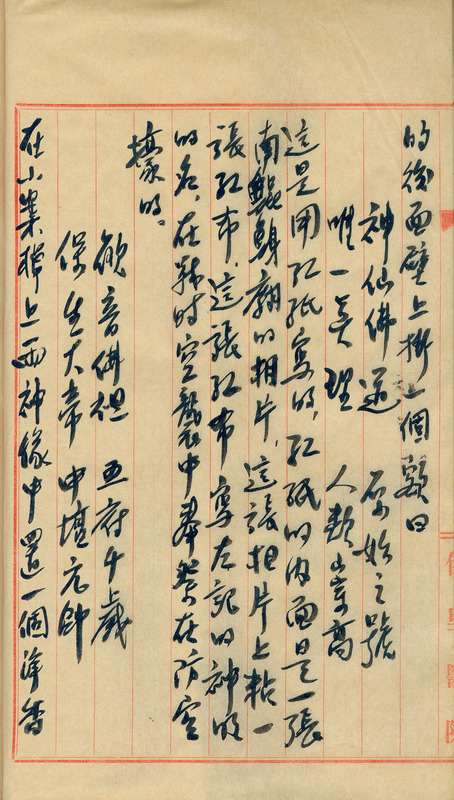 的後面壁上掛一個額曰
神仙佛逆 原始之號
唯一真理 人類崇高
這是用紅紙寫的，紅紙的內面是一張
南鯤鯓廟的相片，這張相片上粘一
張紅布，這張紅布寫左記的神明
的名，在戰時空襲中奉祭在防空
壕的。
觀音佛祖 五府千歲
保生大帝 中壇元帥
在小案椊上兩神像中置一個淨香